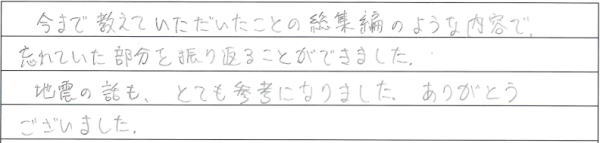 今まで教えていただいたことの総集編のような内容で、
忘れていた部分を振り返ることができました.
地震の話も、とても参考になりました. ありがとう
ございました.